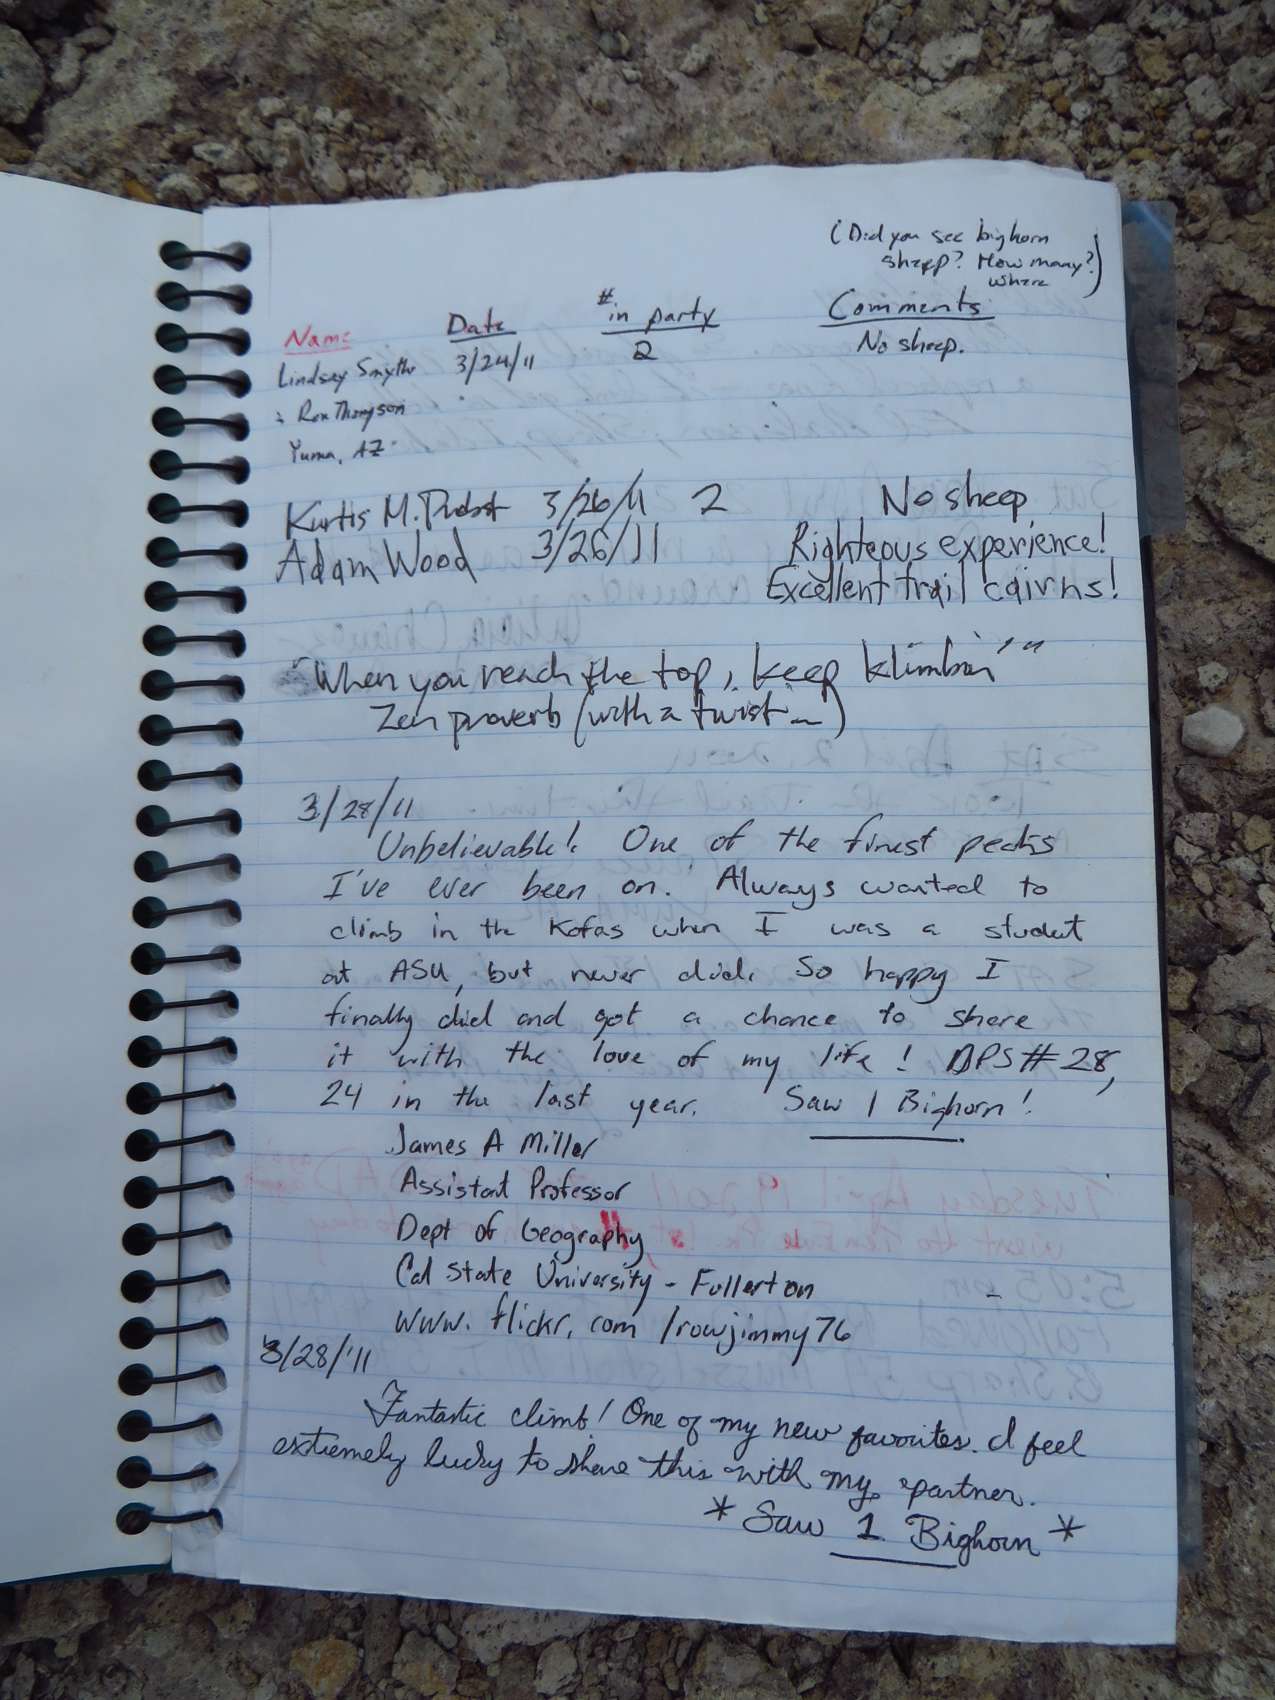 (Did you see bighorn
sheep? How many?)
where
Name Date # in party Comments
Lindsay Smythe 3/24/11 2 No sheep.
: Ron Thompson
Yuma, AZ.
Kurtis M. Probst 3/26/11 2 No sheep
Adam Wood 3/26/11 Righteous experience!
Excellent trail cairns!
"When you reach the top, keep klimbin'"
Zen proverb (with a twist...)
3/28/11
Unbelievable! One of the finest peaks
I've ever been on. Always wanted to
climb in the Kofas when I was a student
at ASU, but never did. So happy I
finally did and got a chance to share
it with the love of my life! DPS #28,
24 in the last year. Saw 1 Bighorn!
James A Miller
Assistant Professor
Dept of Geography
Cal State University - Fullerton
www.flickr.com/rowjimmy76
3/28/'11
Fantastic climb! One of my new favorites. I feel
extremely lucky to share this with my partner.
* Saw 1 Bighorn *